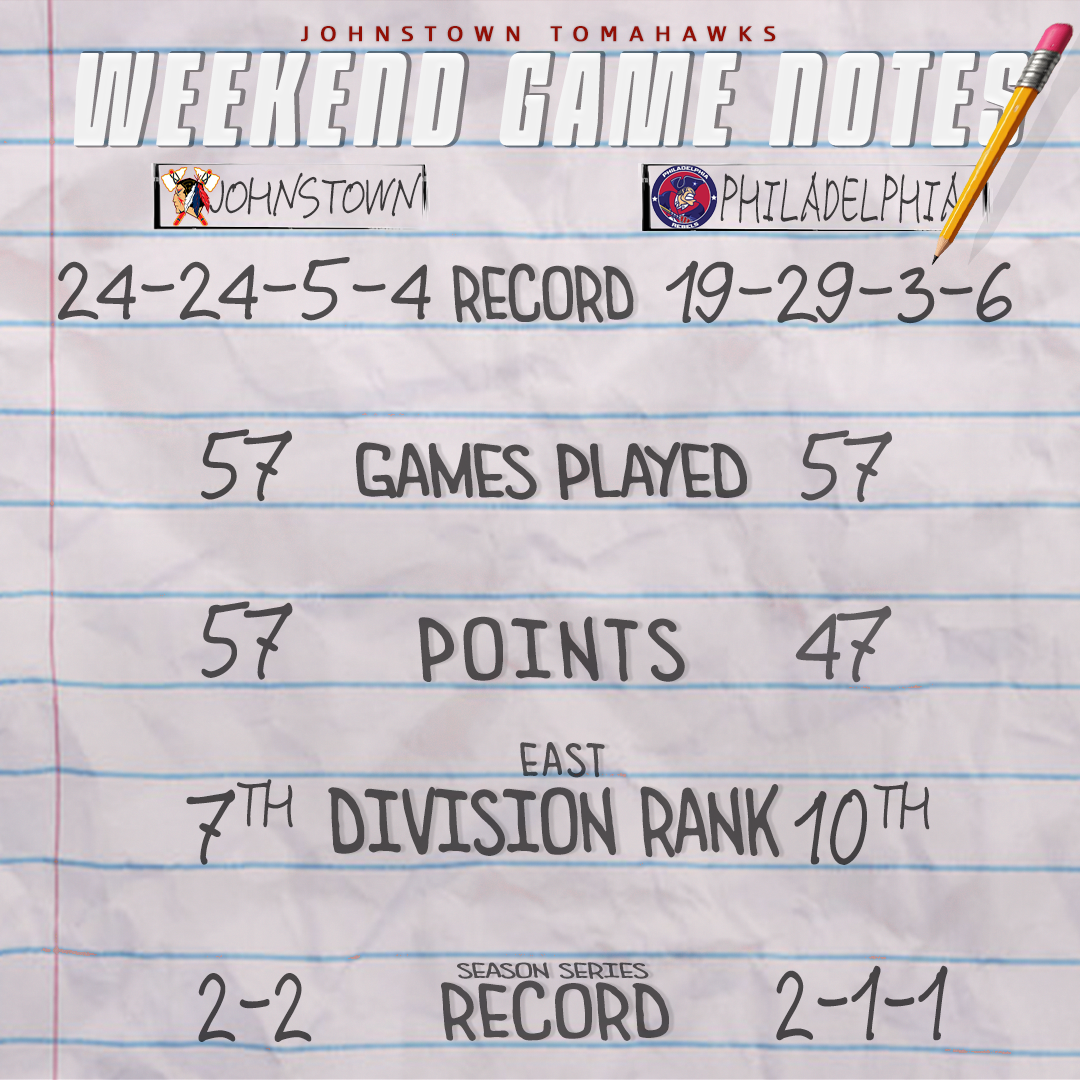 JOHNSTOWN TOMAHAWKS
WEEKEND GAME NOTES
JOHNSTOWN PHILADELPHIA REBELS PHILADELPHIA
24-24-5-4 RECORD 19-29-3-6
57 GAMES PLAYED 57
57 POINTS 47
EAST
7TH DIVISION RANK 10TH
SEASON SERIES
2-2 RECORD 2-1-1